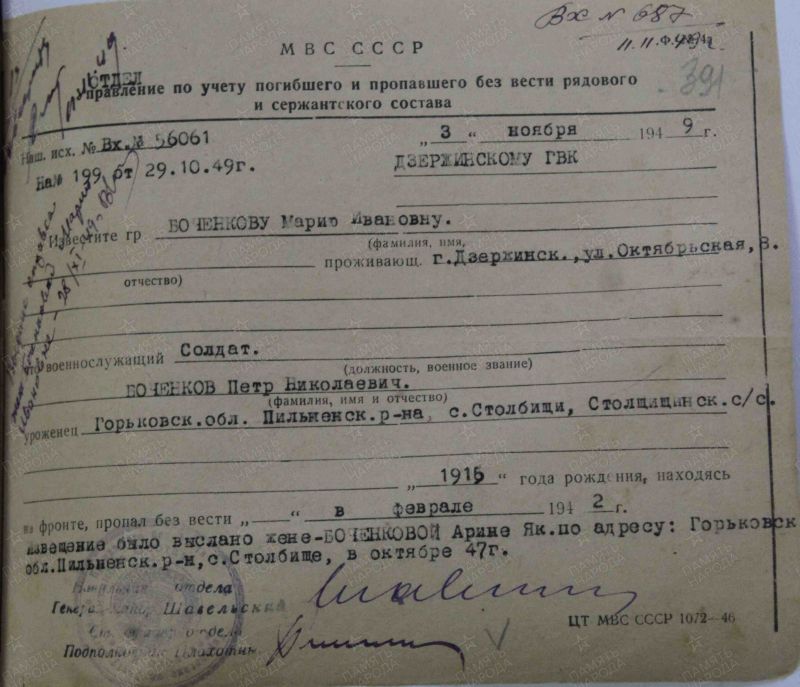 Вх N 687
11.11.49г.
391
МВС СССР
ОТДЕЛ
правление по учету погибшего и пропавшего без вести рядового
и сержантского состава
Наш. исх. № Вх.№ 56061
„ 3 “ ноября 194 9 г.
На№ 199 от 29.10.49г.
ДЗЕРЖИНСКОМУ ГВК
Известите гр БОЧЕНКОВУ Марию Ивановну.
(фамилия, имя,
проживающ. г.Дзержинск.,ул.Октябрьская,8.
отчество)
что военнослужащий Солдат.
(должность, военное звание)
БОЧЕНКОВ Петр Николаевич.
(фамилия, имя и отчество)
уроженец Горьковск.обл. Пильненск.р-на, с.Столбищи, Столщищинск.с/с.
„ 1915 “ года рождения, находясь
на фронте, пропал без вести „ “ в феврале 194 2 г.
извещение было выслано жене-БОЧЕНКОВОЙ Арине Як.по адресу: Горьковск
обл.Пильненск.р-н,с.Столбище, в октябре 47г.
Начальник отдела
Генерал-майор Шавельский
отдела
Подполковник Плахотник
ЦТ МВС СССР 1072—46